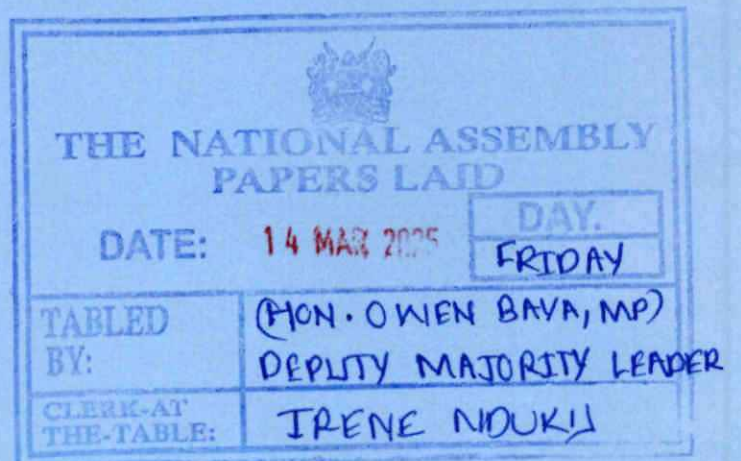 THE NATIONAL ASSEMBLY
PAPERS LAID
DATE: 14 MAR 2025
DAY.
FRIDAY
TABLED BY:
(HON. OWEN BAYA, MP)
DEPUTY MAJORITY LEADER
CLERK-AT THE-TABLE:
IRENE NDUKU